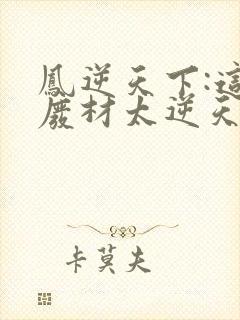 鳳逆天下:這
廢材太逆天
卡莫夫